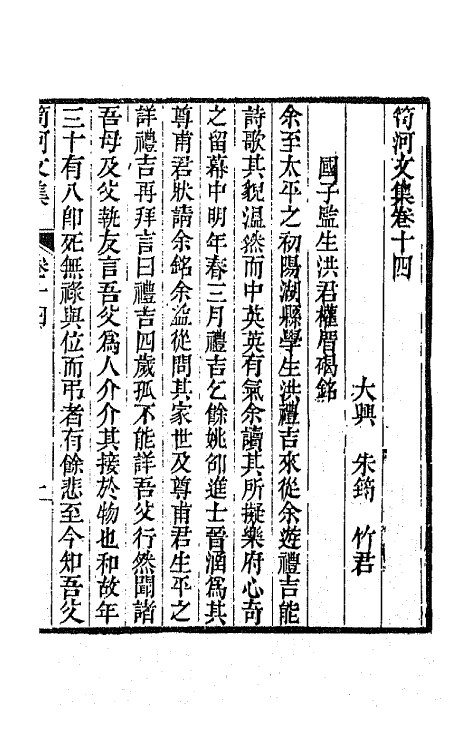 笥河文集卷十四
大興 朱筠 竹君
國子監生洪君權厝碣銘
余至太平之初陽湖縣學生洪禮吉來從余遊禮吉能
詩歌其貌溫然而中英英有氣余讀其所擬樂府心奇
之留幕中明年春三月禮吉乞餘姚邵進士晉涵爲其
尊甫君狀請余銘余益從問其家世及尊甫君生平之
詳禮吉再拜言曰禮吉四歲孤不能詳吾父行然聞諸
吾母及父執友言吾父爲人介介其接於物也和故年
三十有八卽死無祿與位而弔者有餘悲至今知吾父
笥河文集 卷十四 一